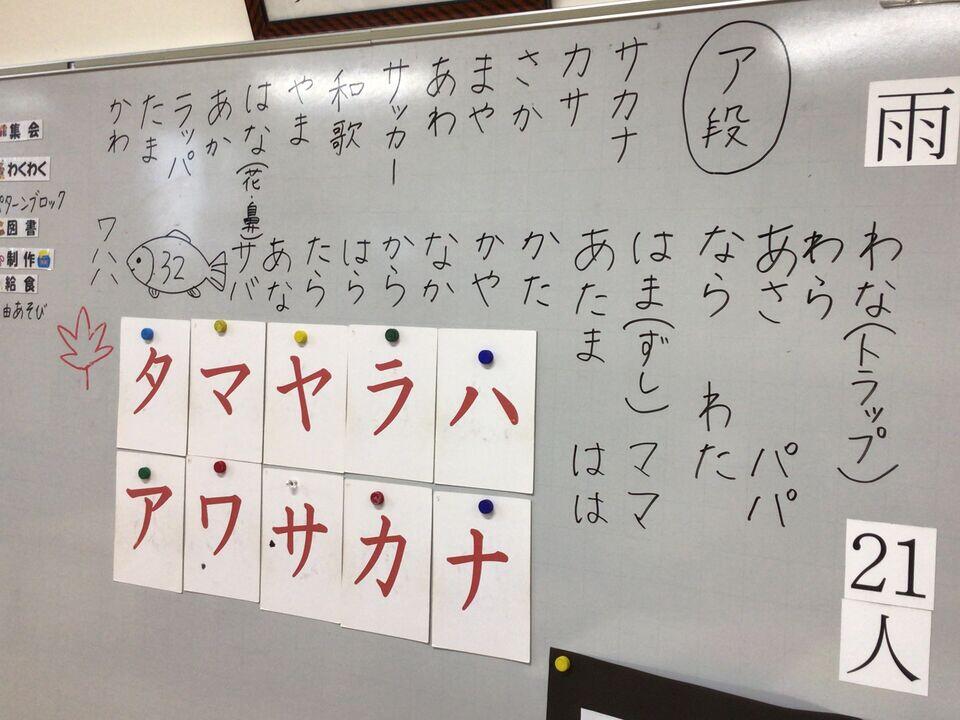 雨
ア段
サカナ
カサ
さか
まや
あわ
サッカー
和歌
やま
はな(花・鼻)
あか
ラッパ
たま
かわ
わな(トラップ)
わら
あさ パパ
なら わた
はま(ずし) ママ
あたま はは
かた
かや
なか
から
はら
たら
あな
サバ
32
ワハハ
集会
わくわく
パターンブロック
図書
制作
給食
由あそび
タマヤラハ
アワサカナ
21
人